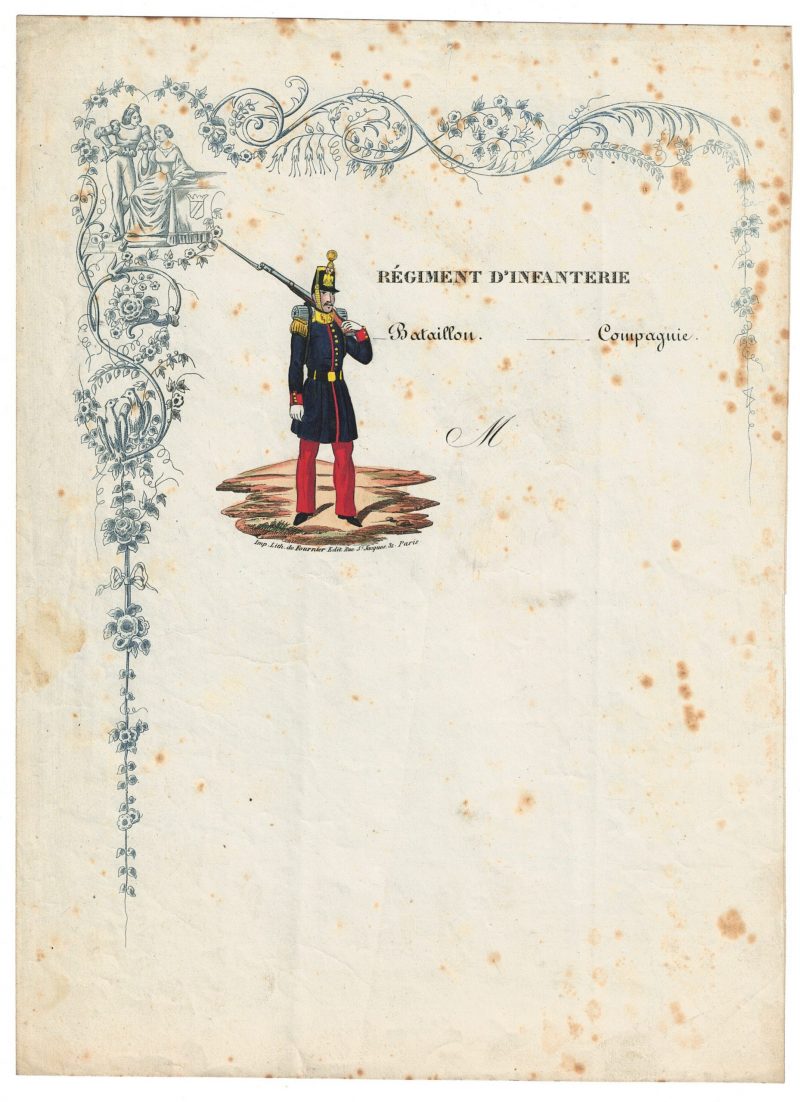 RÉGIMENT D'INFANTERIE
Bataillon. Compagnie.
M
Imp. Lith. de Fournier Edit. Rue St. Jacques. 31. Paris